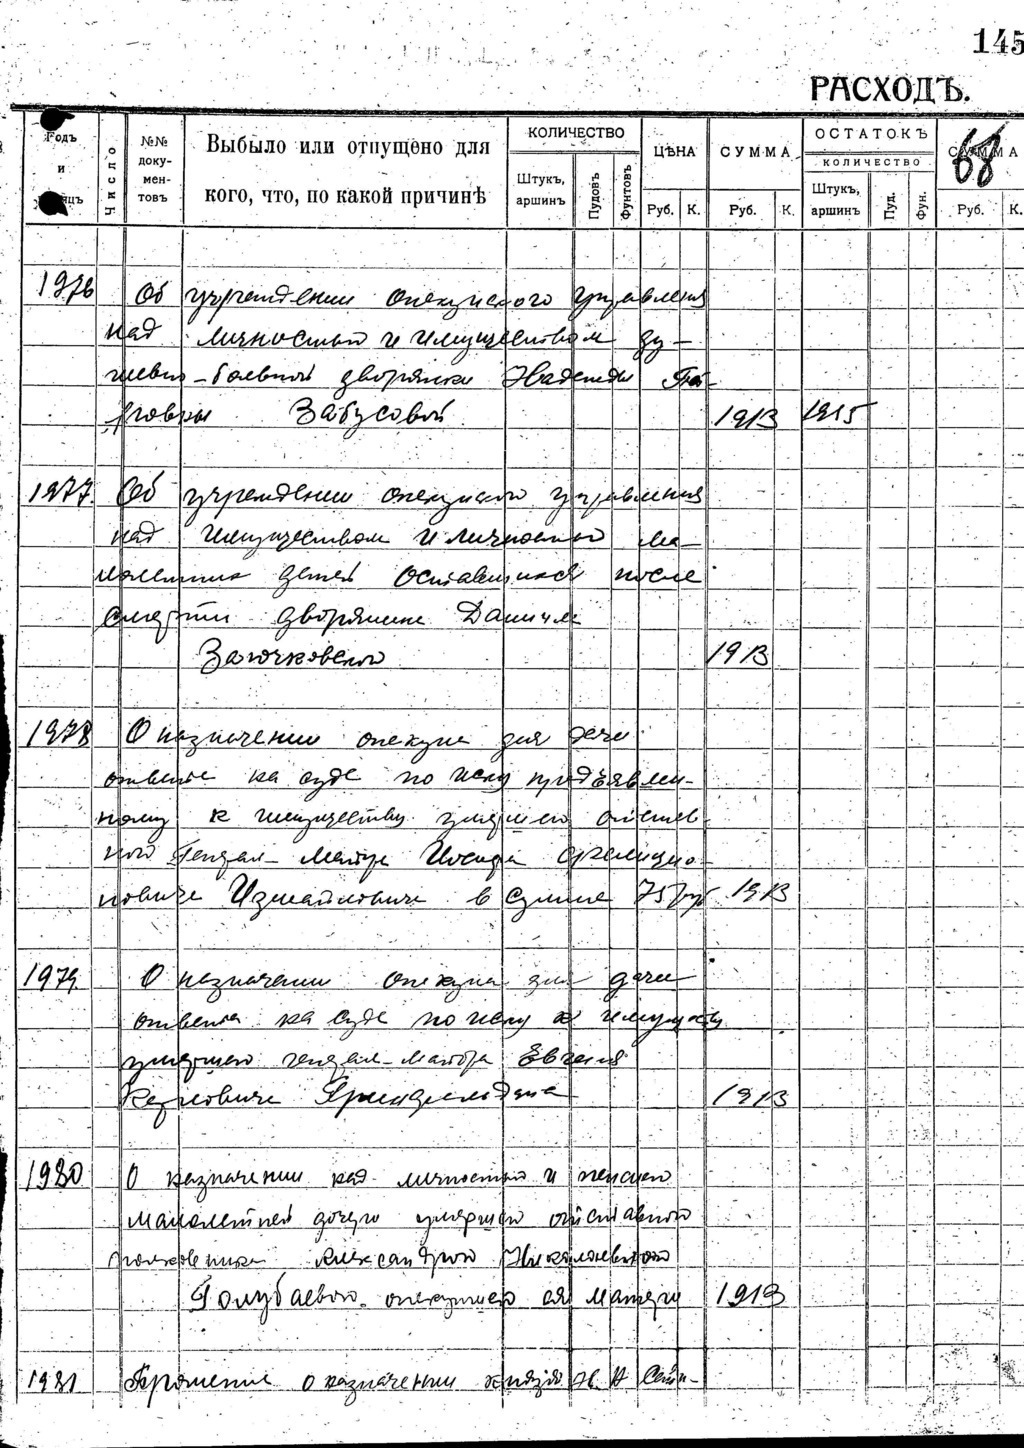 145
РАСХОДЪ.
Годъ и
Число
№№ доку-ментовъ
Выбыло или отпущено для кого, что, по какой причинѣ
КОЛИЧЕСТВО
Штукъ, аршинъ
Пудовъ
Фунтовъ
ЦѢНА
Руб. К.
СУММА
Руб. К.
ОСТАТОКЪ
КОЛИЧЕСТВО
Штукъ, аршинъ
Пуд.
Фун.
68
СУММА
Руб. К.
1976 Об учреждении опекунского управления
над личностью и имуществом ду-
шевно-больной дворянки Надежды
Забусовой 1913 1915
1977 Об учреждении опекунского управления
над имуществом и личностью ма-
лолетних детей оставшихся после
смерти дворянина Даниила
1913
1978 О назначении опекуна для дачи
ответа на суде по иску предъявлен-
ному к имуществу умершего отстав-
ного Генерал-Майора Иосифа
Измайловича в сумме 75 руб 1913
1979 О назначении опекуна для дачи
ответа на суде по иску к имуществу
умершего генерал-майора Евгения
Карловича 1913
1980 О назначении над личностью и пенсией
малолетней дочери умершего отставного
полковника Александрою Николаевною
Голубаевою опекуншею ея матери 1913
1981 Прошение о назначении князя Н. А